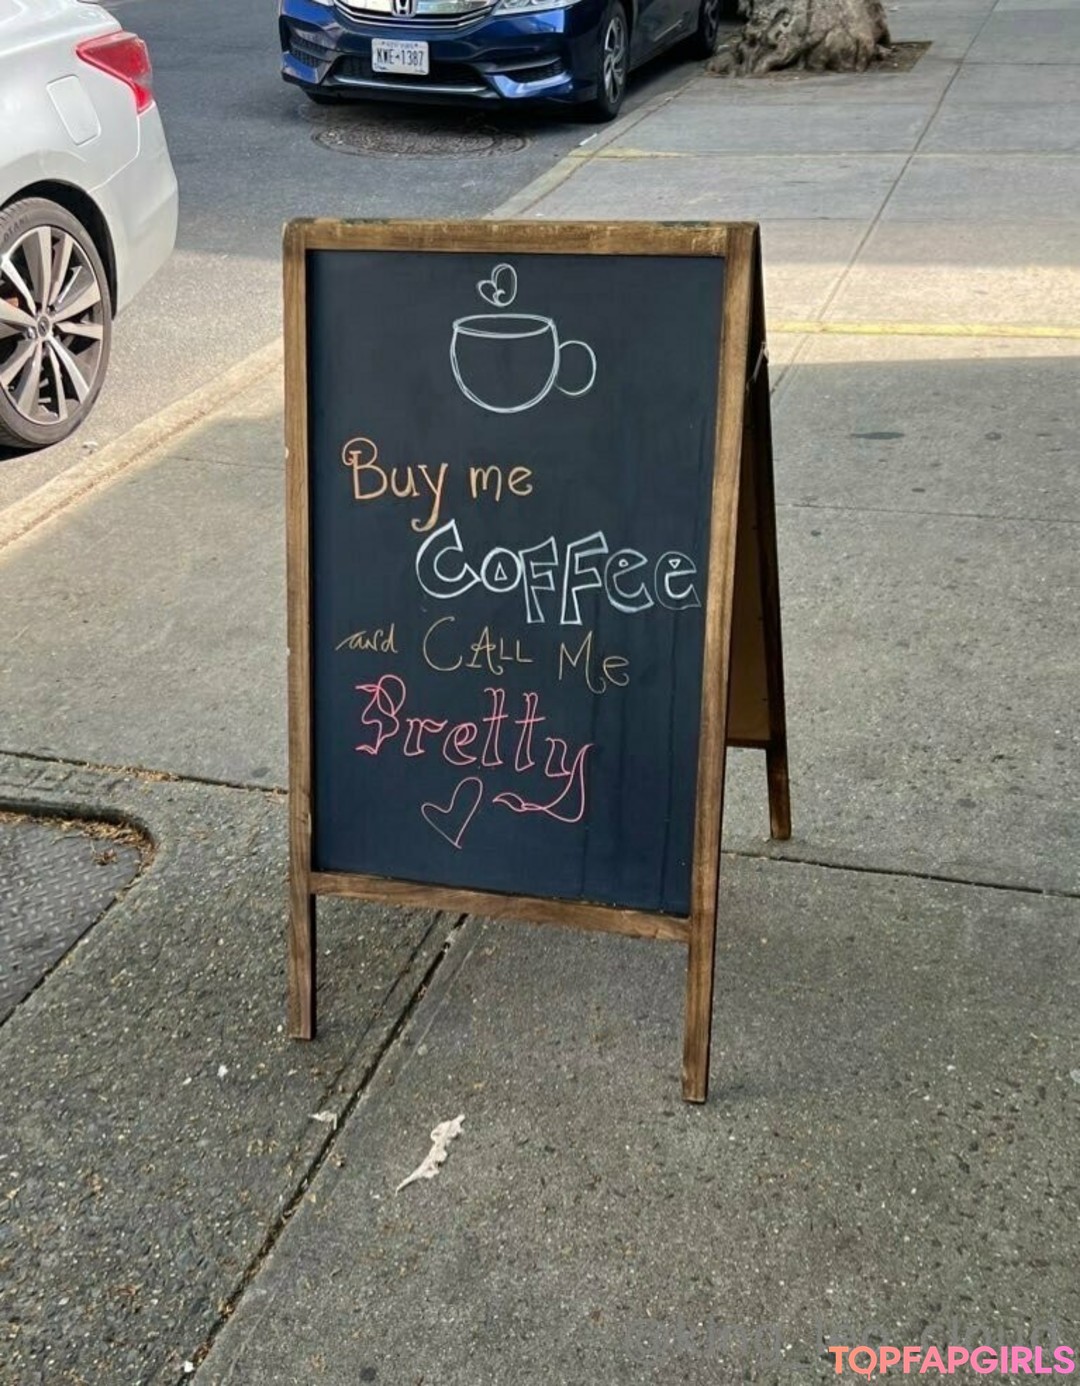 KWE-1387
Buy me
COFFee
and CALL Me
Pretty
TOPFAPGIRLS